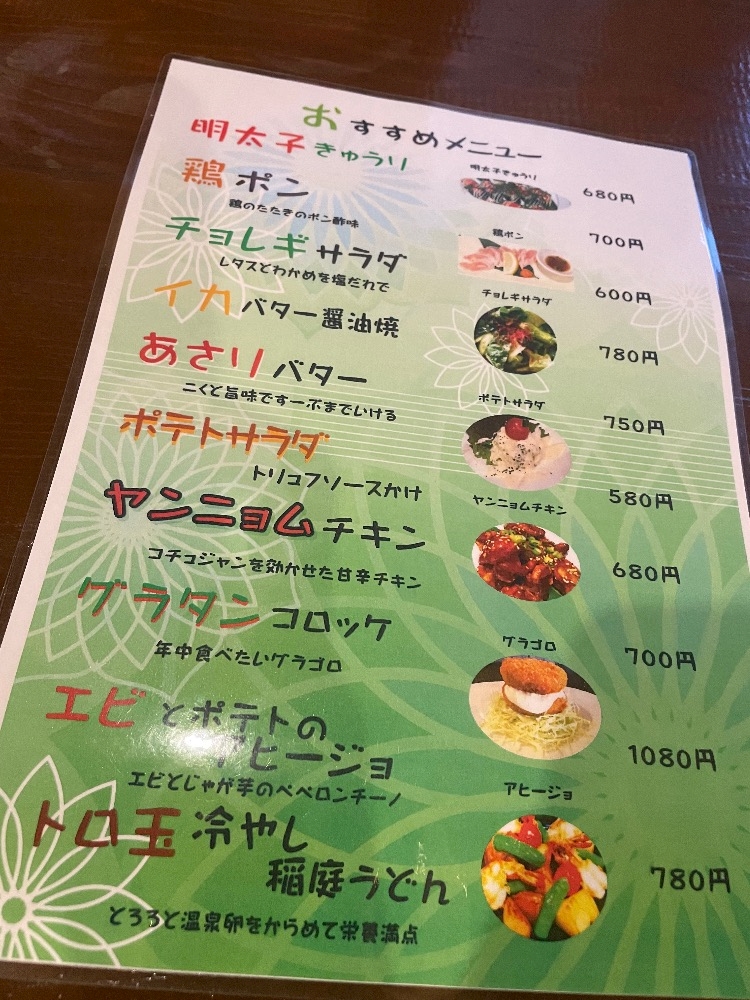 おすすめメニュー
明太子きゅうり
明太子きゅうり
680円
鶏ポン
鶏のたたきのポン酢味
鶏ポン
700円
チョレギサラダ
レタスとわかめを塩だれで
チョレギサラダ
600円
イカバター醤油焼
780円
あさりバター
ニくと旨味ですーぷまでいける
750円
ポテトサラダ
トリュフソースかけ
ポテトサラダ
580円
ヤンニョムチキン
コチュジャンを効かせた甘辛チキン
ヤンニョムチキン
680円
グラタンコロッケ
年中食べたいグラゴロ
グラゴロ
700円
エビとポテトの
アヒージョ
エビとじゃが芋のペペロンチーノ
アヒージョ
1080円
トロ玉冷やし
稲庭うどん
とろろと温泉卵をからめて栄養満点
780円